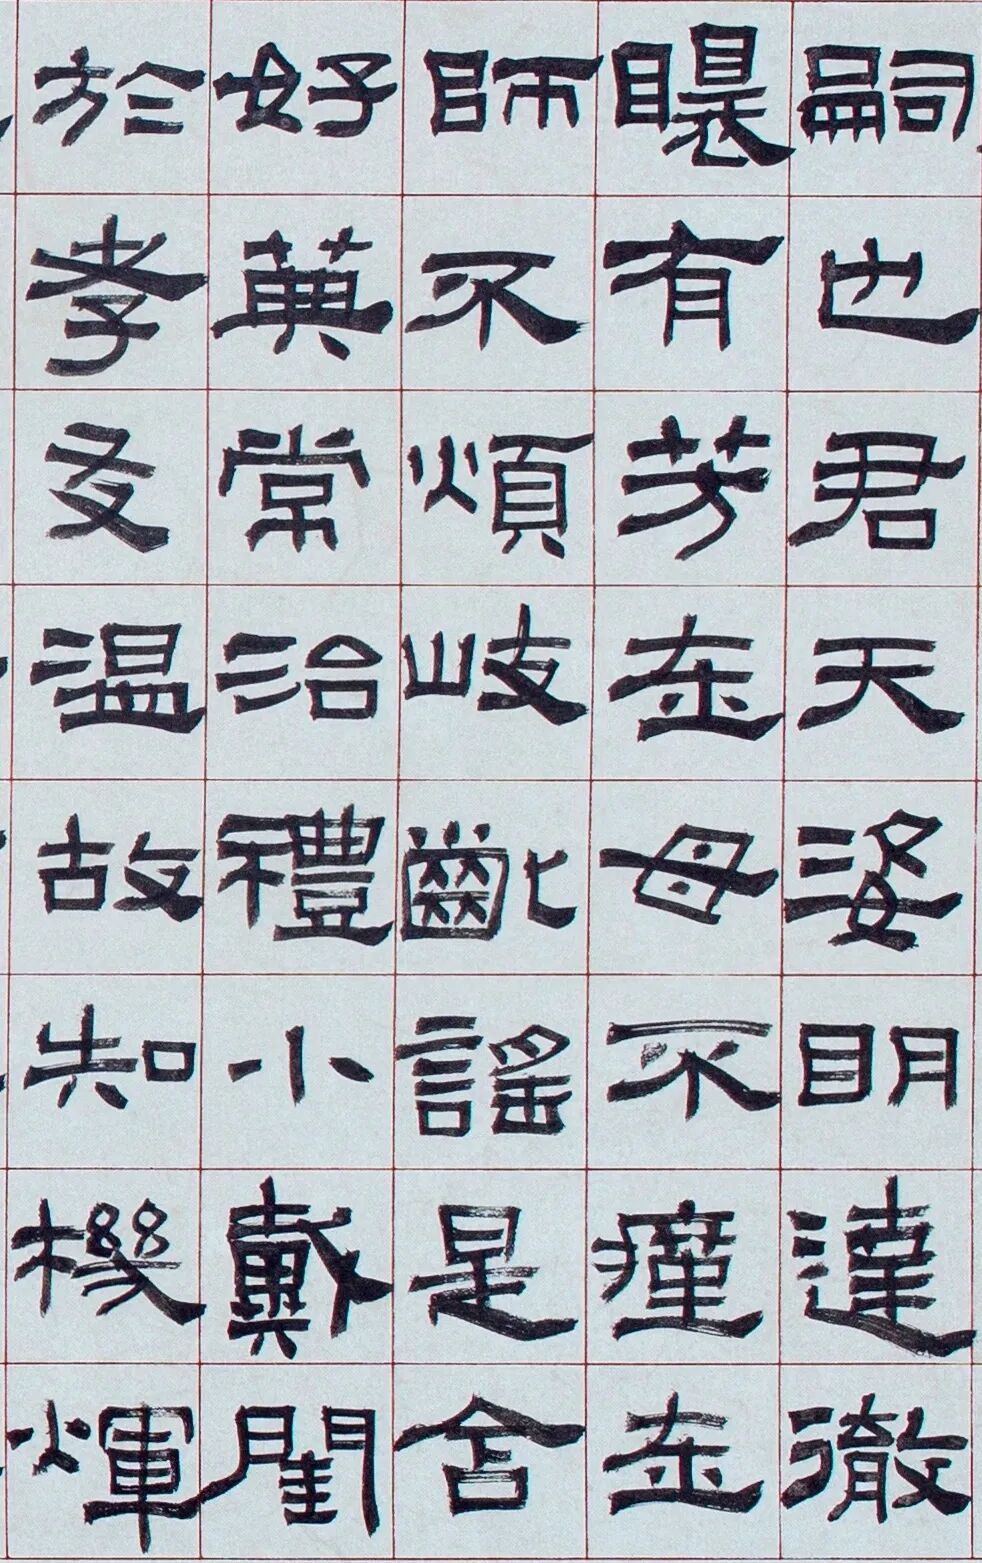 嗣也君天姿明達徹
有芳在母不瘇在
師不煩岐齔謠是含
好典常治禮小戴閨
於孝友溫故知機煇